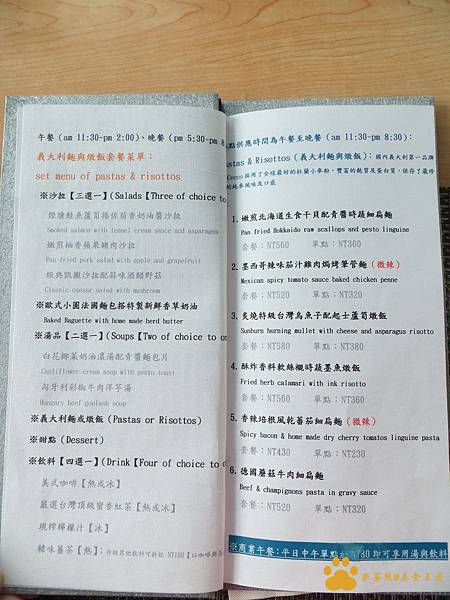 午餐 (am 11:30~pm 2:00)、晚餐 (pm 5:30~pm 8
義大利麵與燉飯套餐菜單：
set menu of pastas & risottos
※沙拉【三選一】(Salads【Three of choice to
煙燻鮭魚蘆筍捲佐茴香奶油醬沙拉
Smoked salmon with fennel cream sauce and asparagus
嫩煎柚香蘋果豬肉沙拉
Pan-fried pork salad with apple and grapefruit
經典凱撒沙拉配蒜味酒醋野菇
Classic caesar salad with mushroom
※歐式小圓法國麵包搭特製新鮮香草奶油
Baked Baguette with home made herd butter
※湯品【二選一】(Soups【Two of choice to on
白花椰菜奶油濃湯配青醬麵包片
Cauliflower cream soup with pesto toast
匈牙利彩椒牛肉洋芋湯
Hungary beef goulash soup
※義大利麵或燉飯 (Pastas or Risottos)
※甜點 (Dessert)
※飲料【四選一】(Drink【Four of choice to o
美式咖啡【熱或冰】
嚴選台灣頂級蜜香紅茶【熱或冰】
現榨檸檬汁【冰】
韓味薑茶【熱】：
點供應時間為午餐至晚餐 (am 11:30~pm 8:30)：
astas & Risottos (義大利麵與燉飯)：國內義大利第一品牌
Cecco 採用了全球最好的杜蘭小麥粉，豐富的麩質及蛋白質，保存了最佳
的純麥風味及口感
1. 嫩煎北海道生食干貝配青醬時蔬細扁麵
Pan fried Hokkaido raw scallops and pesto linguine
套餐：NT560 單點：NT360
2. 墨西哥辣味茄汁雞肉焗烤筆管麵 (微辣)
Mexican spicy tomato sauce baked chicken penne
套餐：NT520 單點：NT320
3. 炙燒特級台灣烏魚子配起士蘆筍燉飯
Sunburn burning mullet with cheese and asparagus risotto
套餐：NT580 單點：NT380
4. 酥炸香料軟絲襯時蔬墨魚燉飯
Fried herb calamari with ink risotto
套餐：NT560 單點：NT360
5. 香辣培根風乾蕃茄細扁麵 (微辣)
Spicy bacon & home made dry cherry tomatos linguine pasta
套餐：NT430 單點：NT230
6. 德國蘑菇牛肉細扁麵
Beef & champignons pasta in gravy sauce
套餐：NT520 單點：NT320
※商業午餐：平日中午單點加 NT80 即可享用湯與飲料